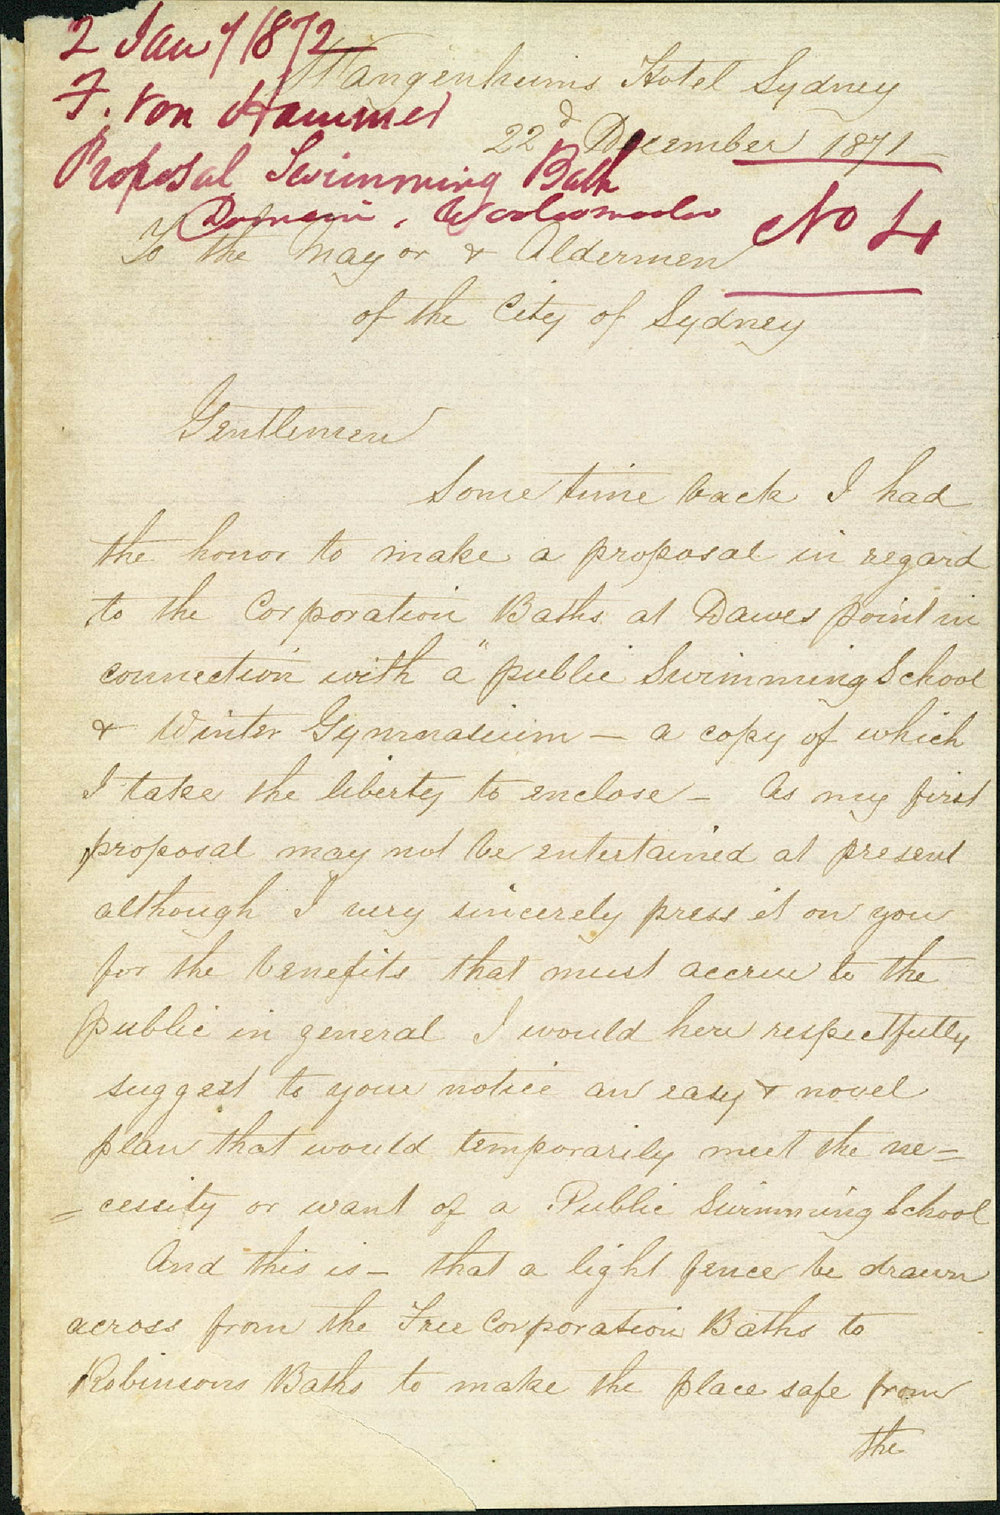 2 Jany 1872
F. von Hammer
Proposal Swimming Bath
Domain, Woolloomooloo
No 4
Wangenheims Hotel Sydney
22d December 1871
To the Mayor & Aldermen
of the City of Sydney
Gentlemen
Some time back I had
the honor to make a proposal in regard
to the Corporation Baths at Dawes point in
connection with a "public Swimming School
& Winter Gymnasium — a copy of which
I take the liberty to enclose — As my first
proposal may not be entertained at present
although I very sincerely press it on you
for the benefits that must accrue to the
public in general I would here respectfully
suggest to your notice an easy & novel
plan that would temporarily meet the ne=
=cessity or want of a Public Swimming School
And this is — that a light fence be drawn
across from the Free Corporation Baths to
Robinsons Baths to make the place safe from
the